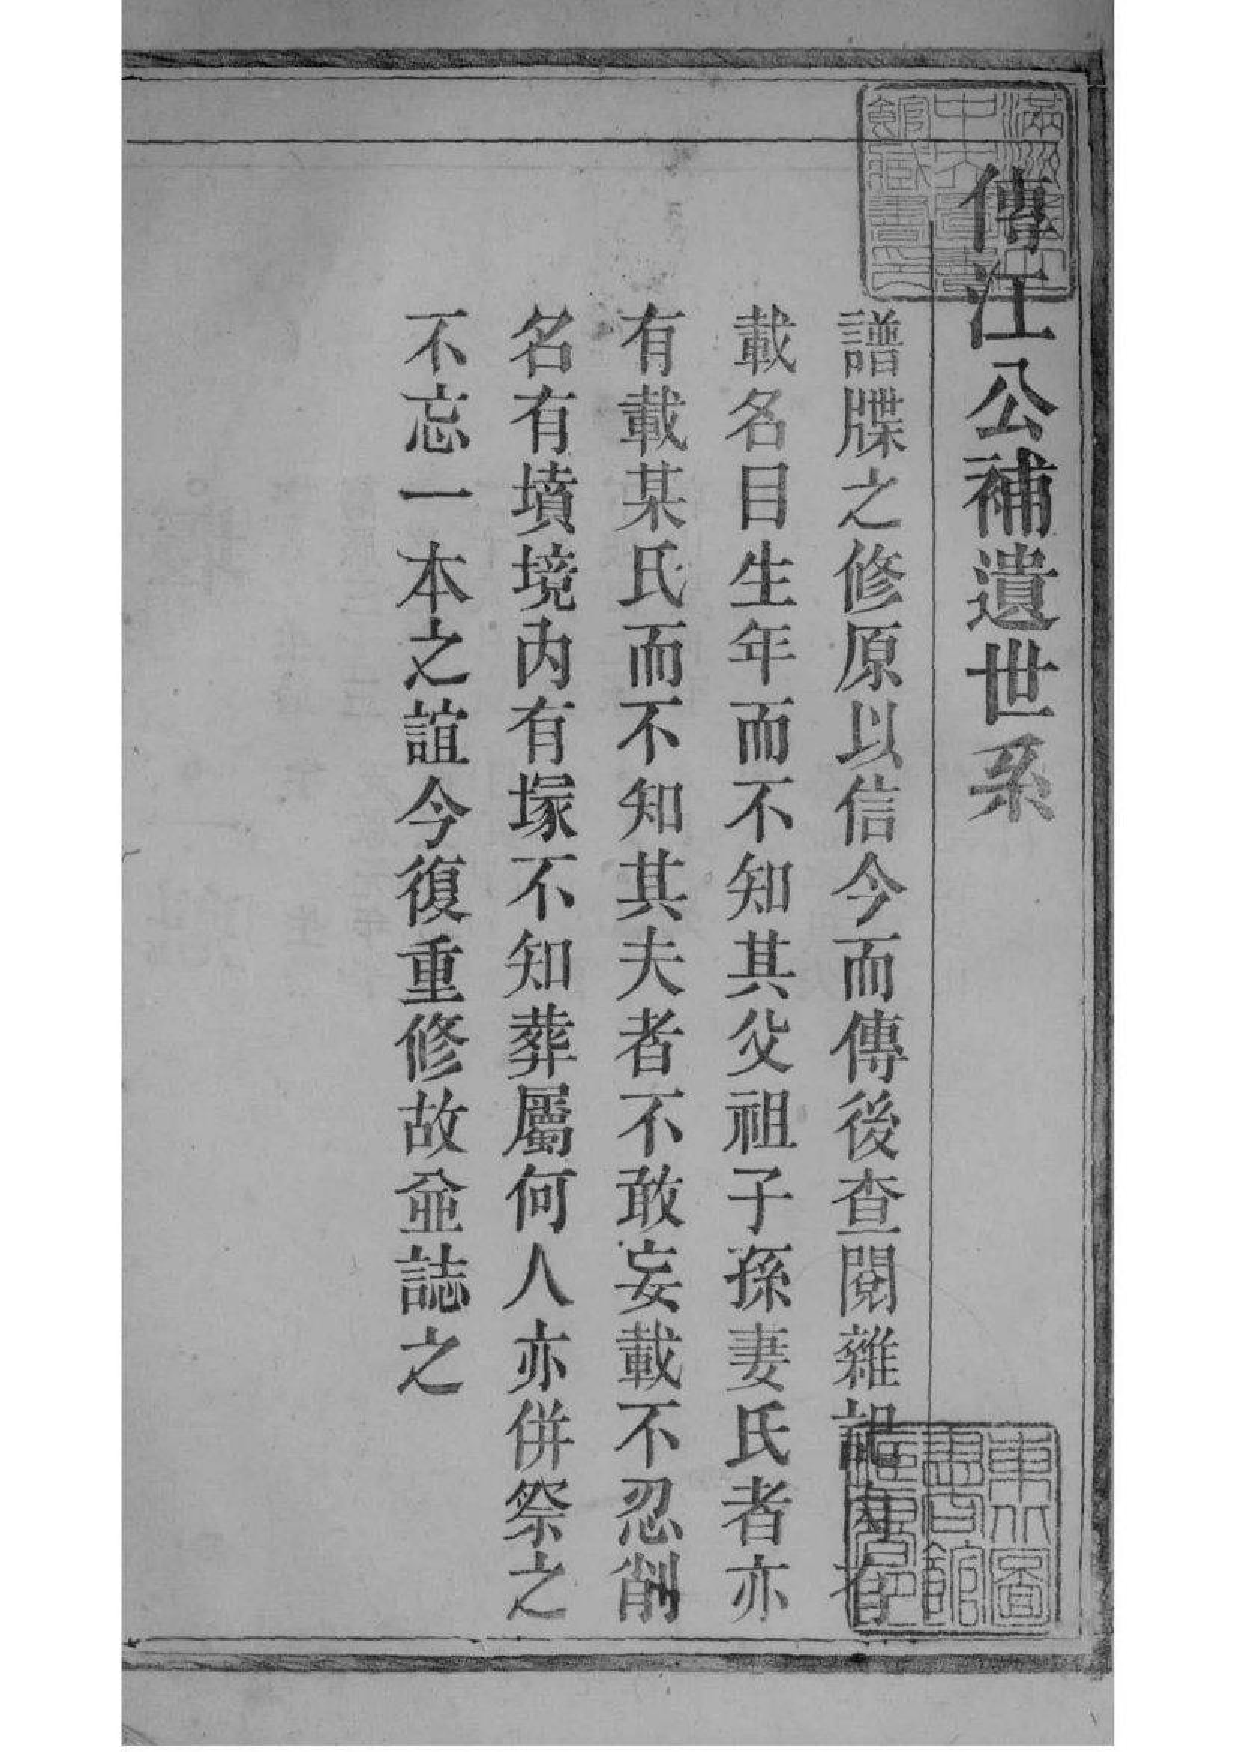 傳江公補遺世系
譜牒之修原以信今而傳後查閱雜記內有
載名目生年而不知其父祖子孫妻氏者亦
有載某氏而不知其夫者不敢妄載不忍削
名有墳境內有塚不知葬屬何人亦併祭之
不忘一本之誼今復重修故並誌之
東北圖
書館